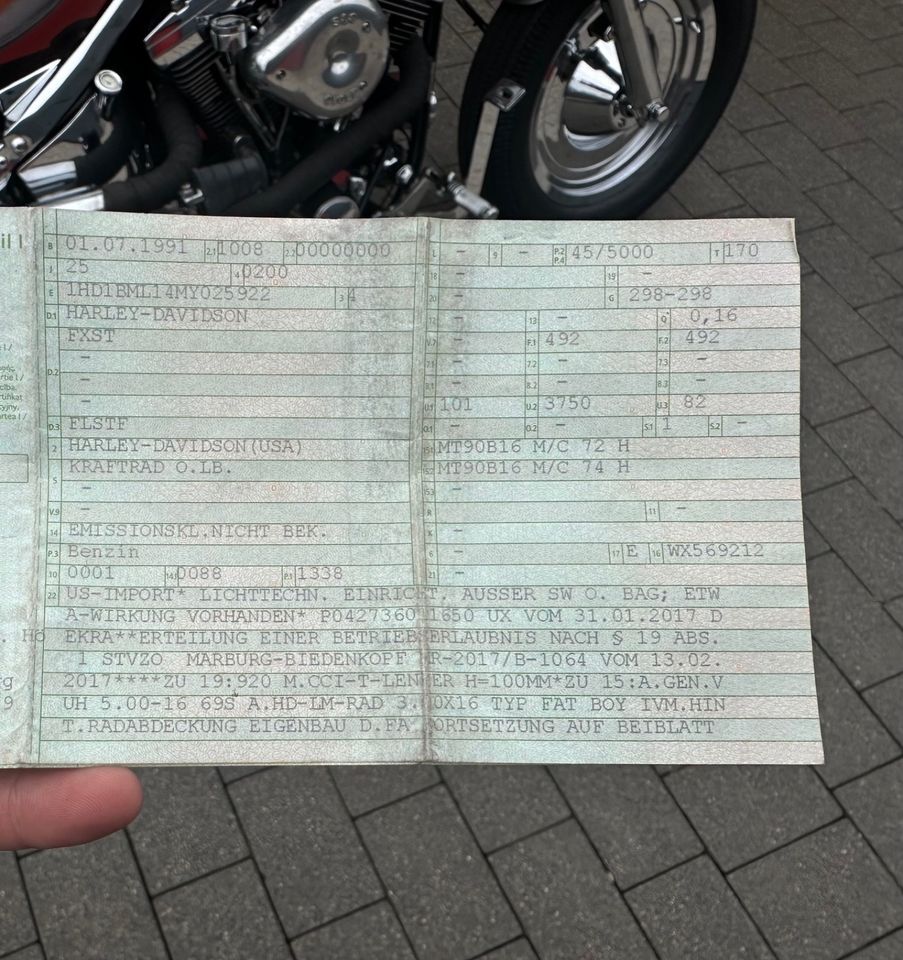 S&S
B 01.07.1991 2.1 1008 2.2 00000000 L - 9 - P.2 P.4 45/5000 T 170
J 25 4 0200 18 - 19 -
E 1HD1BML14MY025922 3 4 20 - G 298-298
D.1 HARLEY-DAVIDSON 12 - 13 - Q 0,16
FXST V.7 - F.1 492 F.2 492
- 7.1 - 7.2 - 7.3 -
D.2 - 8.1 - 8.2 - 8.3 -
- U.1 101 U.2 3750 U.3 82
D.3 FLSTF O.1 - O.2 - S.1 1 S.2 -
2 HARLEY-DAVIDSON(USA) 15.1 MT90B16 M/C 72 H
5 KRAFTRAD O.LB. 15.2 MT90B16 M/C 74 H
- 15.3 -
V.9 - R - 11 -
14 EMISSIONSKL.NICHT BEK. K -
P.3 Benzin 6 - 17 E 16 WX569212
10 0001 14.1 0088 P.1 1338 21 -
22 US-IMPORT* LICHTTECHN. EINRICHT. AUSSER SW O. BAG; ETW
A-WIRKUNG VORHANDEN* P0427360 1650 UX VOM 31.01.2017 D
EKRA**ERTEILUNG EINER BETRIEBSERLAUBNIS NACH § 19 ABS.
1 STVZO MARBURG-BIEDENKOPF MR-2017/B-1064 VOM 13.02.
2017****ZU 19:920 M.CCI-T-LENKER H=100MM*ZU 15:A.GEN.V
UH 5.00-16 69S A.HD-LM-RAD 3.00X16 TYP FAT BOY IVM.HIN
T.RADABDECKUNG EIGENBAU D.FA FORTSETZUNG AUF BEIBLATT